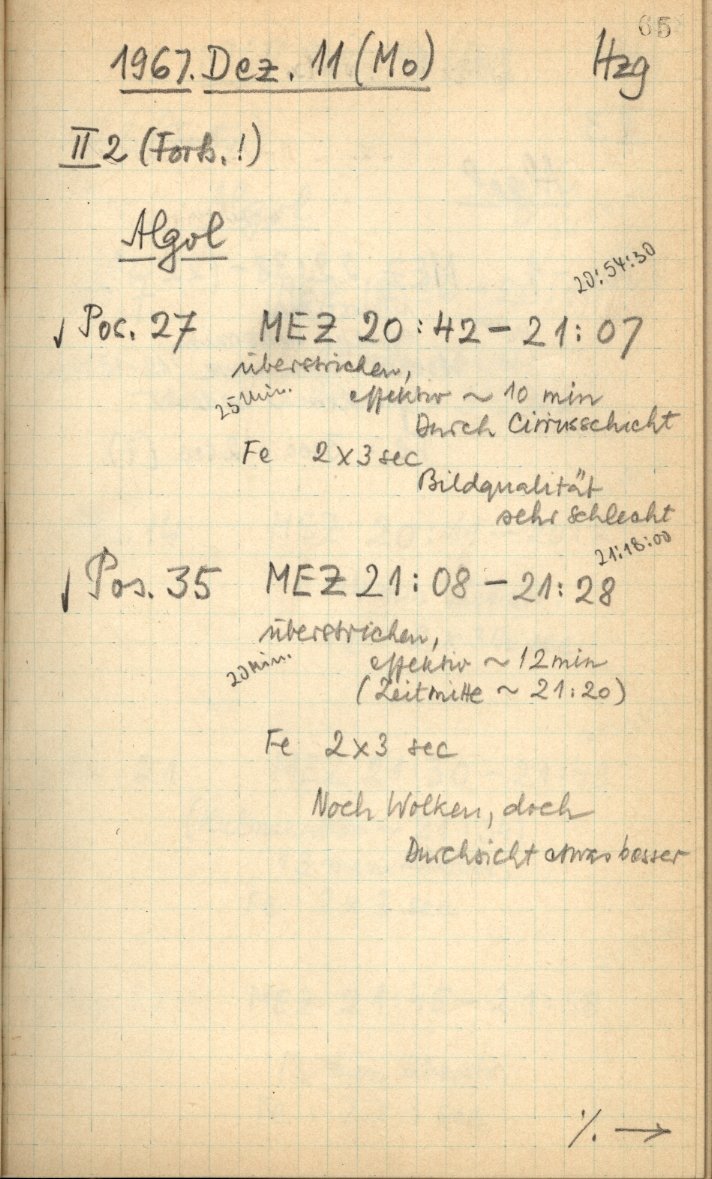 65
1967. Dez. 11 (Mo) Hzg
II 2 (Forts.!)
Algol
20:54:30
√ Pos. 27 MEZ 20:42 – 21:07
überstrichen,
25 Min. effektiv ~ 10 min
Durch Cirrusschicht
Fe 2x3 sec
Bildqualität
sehr schlecht
21:18:00
√ Pos. 35 MEZ 21:08 – 21:28
überstrichen,
20 Min. effektiv ~ 12 min
(Zeitmitte ~ 21:20)
Fe 2x3 sec
Noch Wolken, doch
Durchsicht etwas besser
%. →